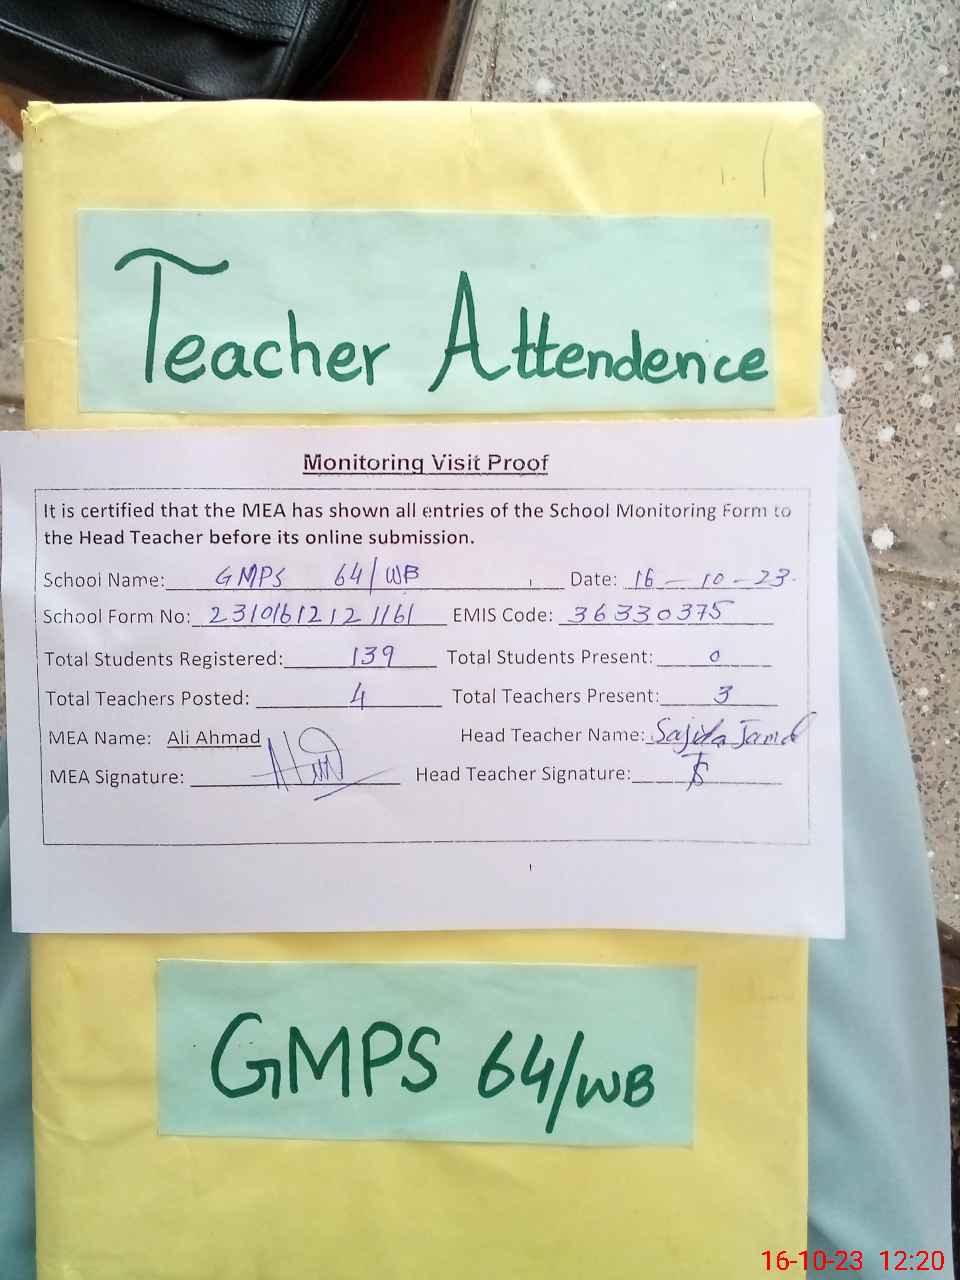 Teacher Attendence
Monitoring Visit Proof
It is certified that the MEA has shown all entries of the School Monitoring Form to
the Head Teacher before its online submission.
School Name: GMPS 64/WB Date: 16-10-23.
School Form No: 23101612121161 EMIS Code: 36330375
Total Students Registered: 139 Total Students Present: 0
Total Teachers Posted: 4 Total Teachers Present: 3
MEA Name: Ali Ahmad Head Teacher Name: Sajida
MEA Signature: Head Teacher Signature:
GMPS 64/WB
16-10-23 12:20